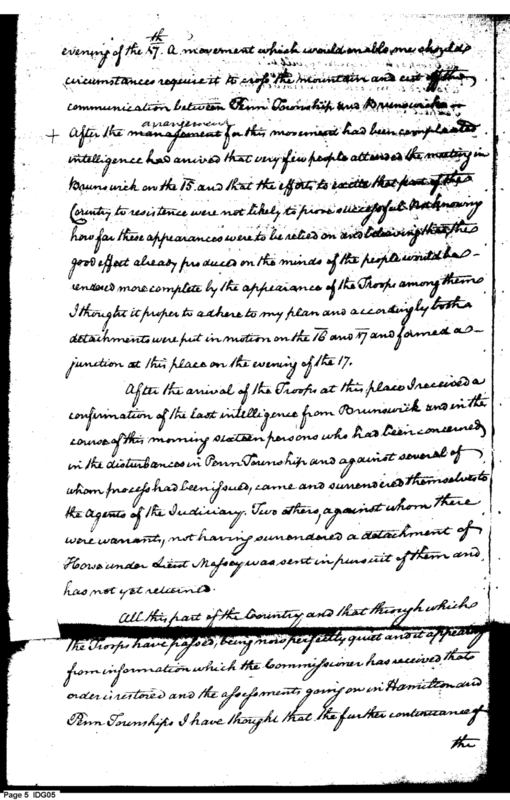 evening of the 17th. A movement which would enable me should
circumstances require it to cross the mountain and cut off the
communication between Penn Township and Brunswick
arrangement
+ After the management for this movement had been completed
intelligence had arrived that very few people attended the meeting in
Brunswick on the 15. and that the efforts to excite that part of the
Country to resistence were not likely to prove successful. Not knowing
how far these appearances were to be relied on and believing that the
good effect already produced on the minds of the people would be
rendered more complete by the appearance of the Troops among them
I thought it proper to adhere to my plan and accordingly both
detachments were put in motion on the 16 and 17 and formed a
junction at this place on the evening of the 17.
After the arrival of the Troops at this place I received a
confirmation of the last intelligence from Brunswick and in the
course of this morning sixteen persons who had been concerned
in the disturbances in Penn Township and against several of
whom process had been issued, came and surrendered themselves to
the Agents of the Judiciary. Two others, against whom there
were warrants, not having surrendered a detachment of
Horse under Lieut Massey was sent in pursuit of them and
has not yet returned.
All this part of the Country and that through which
the Troops have passed, being now perfectly quiet and it appearing
from information which the Commissioner has received that
order is restored and the assessments going on in Hamilton and
Penn Townships I have thought that the further continuance of
the
Page 5 IDG05